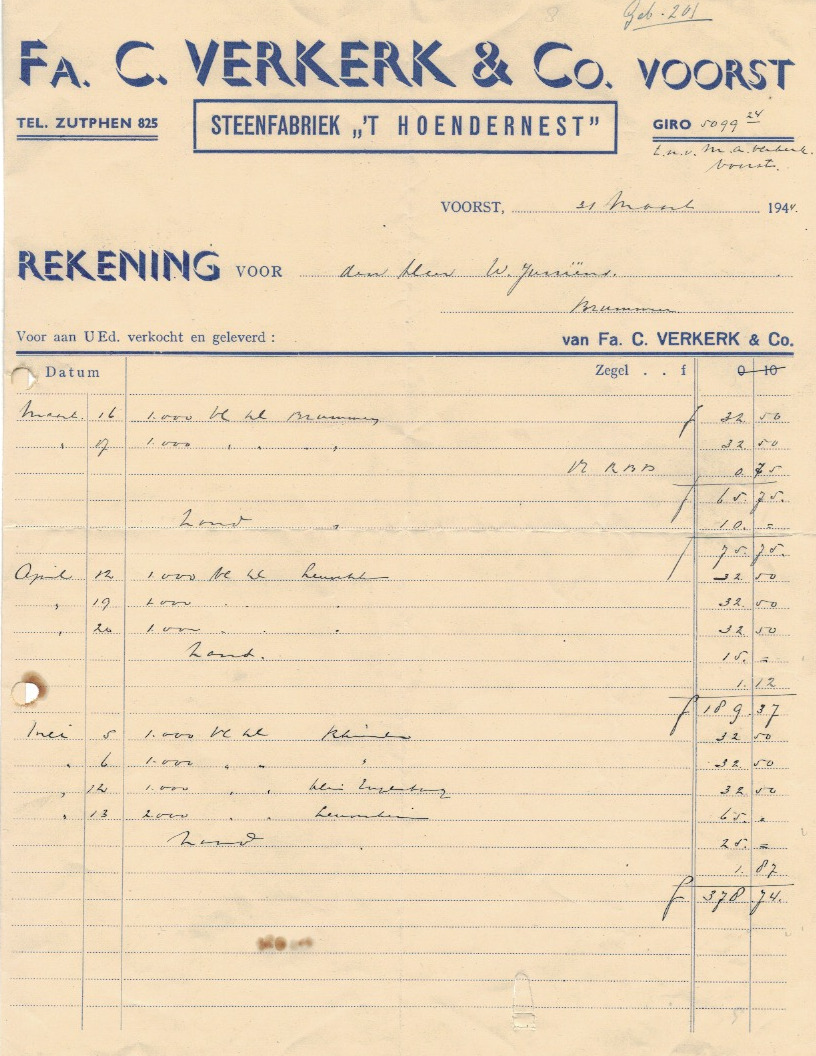 Geb. 201
FA. C. VERKERK & CO. VOORST
TEL. ZUTPHEN 825
STEENFABRIEK „'T HOENDERNEST”
GIRO 5099 24
t.n.v. M. A. Verkerk.
Voorst.
VOORST, 31 Maart 1944.
REKENING VOOR den Heer W. Jurriëns.
Brummen
Voor aan U Ed. verkocht en geleverd :
van Fa. C. VERKERK & Co.
Datum Zegel . . f 0 10
Maart 16 1.000 Vl kl Brummen f 32 50
" 17 1.000 " " " 32 50
0. 75
f 65. 75.
Zand " 10. =
75. 75.
April 12 1.000 Vl kl 32 50
" 19 1.000 " " 32. 50
" 20 1.000 " " " 32 50
Zand. 15. =
1. 12
f 189. 37
Mei 5 1.000 Vl kl 32 50
" 6 1.000 " " " 32. 50
" 12 1.000 " " klein 32 50
" 13 2.000 " " 65. "
Zand 25. =
1. 87
f 378. 74.